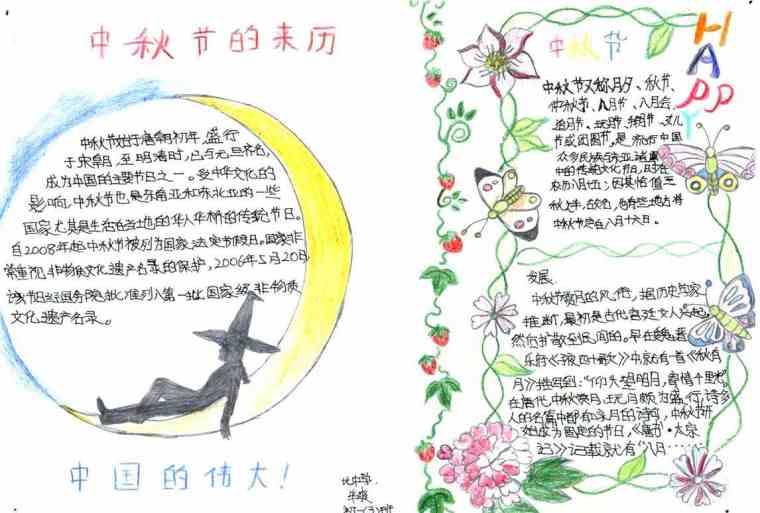 中秋节的来历
中秋节始于唐朝初年，盛行
于宋朝，至明清时，已与元旦齐名，
成为中国的主要节日之一。受中华文化的
影响，中秋节也是东南亚和东北亚的一些
国家尤其是生活在当地的华人华侨的传统节日。
自2008年起中秋节被列为国家法定节假日。国家非
常重视非物质文化遗产名录的保护，2006年5月20日
该节日经国务院批准列入第一批国家级非物质
文化遗产名录。
中国的伟大！
初一(3)班
中秋节
HAPPY
中秋节又称月夕、秋节、
仲秋节、八月节、八月会、
追月节、玩月节、拜月节、女儿
节或团圆节，是流行于中国
众多民族与东亚诸国
中的传统文化节日，时在
农历八月十五；因其恰值三
秋之半，故名，也有些地方将
中秋节定在八月十六日。
发展
中秋节赏月的风俗，据历史学家
推断，最初是古代宫廷文人兴起，
然后扩散至民间的。早在魏晋
乐府《子夜四十歌》中就有一首《秋有
月》描写到：“仰头望明月，寄情千里光。”
在唐代，中秋赏月、玩月颇为盛行，许多
人的名篇中都有咏月的诗句，中秋节开
始成为固定的节日，《唐书·太宗
记》记载就有“八月……